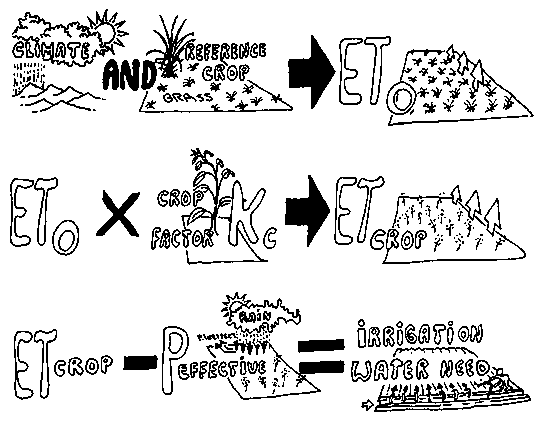 CLIMATE AND REFERENCE CROP GRASS ETO
ETO X CROP FACTOR KC ETCROP
ETCROP - PEFFECTIVE RAIN = IRRIGATION WATER NEED